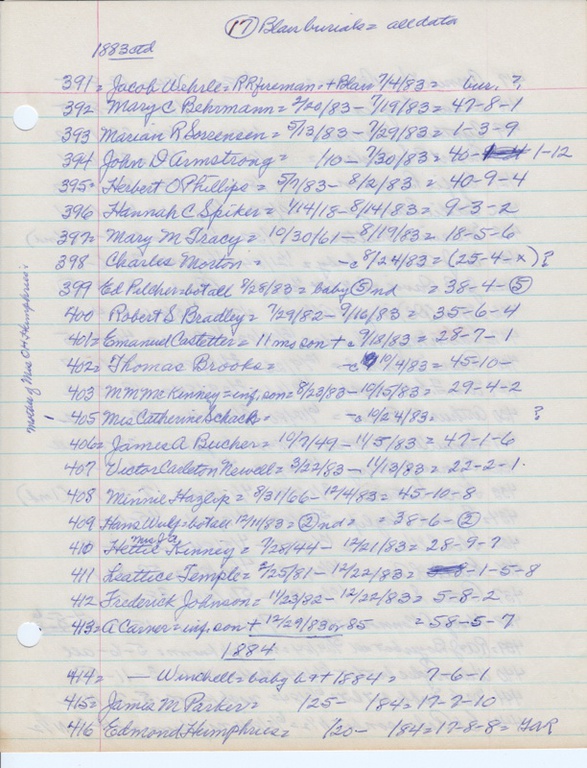 (17) Blair burials = all data
1883 ctd
391 = Jacob Wehrle = RR fireman = + Blair 7/4/83 = bur. ?
392 Mary C Behrmann = 5/20/83 - 7/19/83 = 47-8-1
393 Marian R Sorrensen = 5/13/83 - 7/29/83 = 1-3-9
394 John D Armstrong = /10 - 7/30/83 = 40- 1-12
395 = Herbert O Phillips = 5/7/83 - 8/2/83 = 40-9-4
396 Hannah C Spiker = 1/14/18 - 8/14/83 = 9-3-2
397 = Mary M Tracy = 10/30/61 - 8/19/83 = 18-5-6
398 Charles Morton = -c 8/24/83 = (25-4-x) ?
399 Ed Pilcher = bot all 8/28/83 = baby (5) nd = 38-4-(5)
400 Robert S Bradley = 7/29/82 - 9/16/83 = 35-6-4
401 = Emanuel Castetter = 11 mo son + c 9/18/83 = 28-7-1
402 = Thomas Brooks = -c 10/4/83 = 45-10-
403 M M McKenney = inf. son = 8/23/83 - 10/15/83 = 29-4-2
mother of Mrs OH Humphries =
405 Mrs Catherine Schack = -c 10/24/83 = ?
406 = James A Bucher = 10/7/49 - 11/5/83 = 47-1-6
407 Victor Carleton Newell = 3/22/83 - 11/13/83 = 22-2-1.
408 Minnie Hazlip = 8/31/66 - 12/4/83 = 45-10-8
409 Hans Wulf = bot all 12/11/83 = (2) nd = = 38-6-(2)
410 Hettie Mrs Kinney = 7/28/44 - 12/21/83 = 28-9-7
411 Leattice Temple = 2/25/81 - 12/22/83 = 1-5-8
412 Frederick Johnson = 11/23/82 - 12/22/83 = 5-8-2
413 = A Carner = inf. son + 12/29/83 or 85 = 58-5-7
1884
414 = — Winchell = baby b + 1884 = 7-6-1
415 = James M Parker = /25 - /84 = 17-7-10
416 Edmond Humphries = /20 - /84 = 17-8-8 = GAR